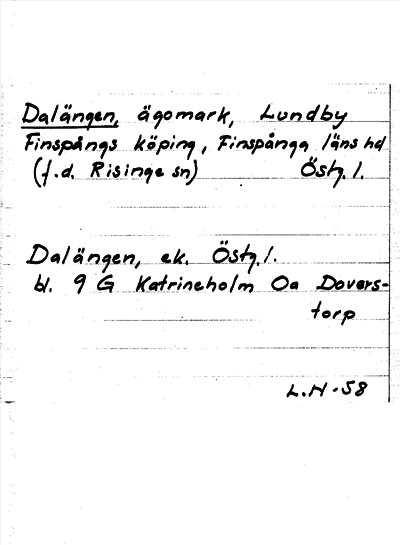 Dalängen, ägomark, Lundby
Finspångs köping, Finspånga läns hd
(f.d. Risinge sn) Östg. l.
Dalängen, ek. Östg. l.
bl. 9 G Katrineholm Oa Dovers-
torp
L.H-58